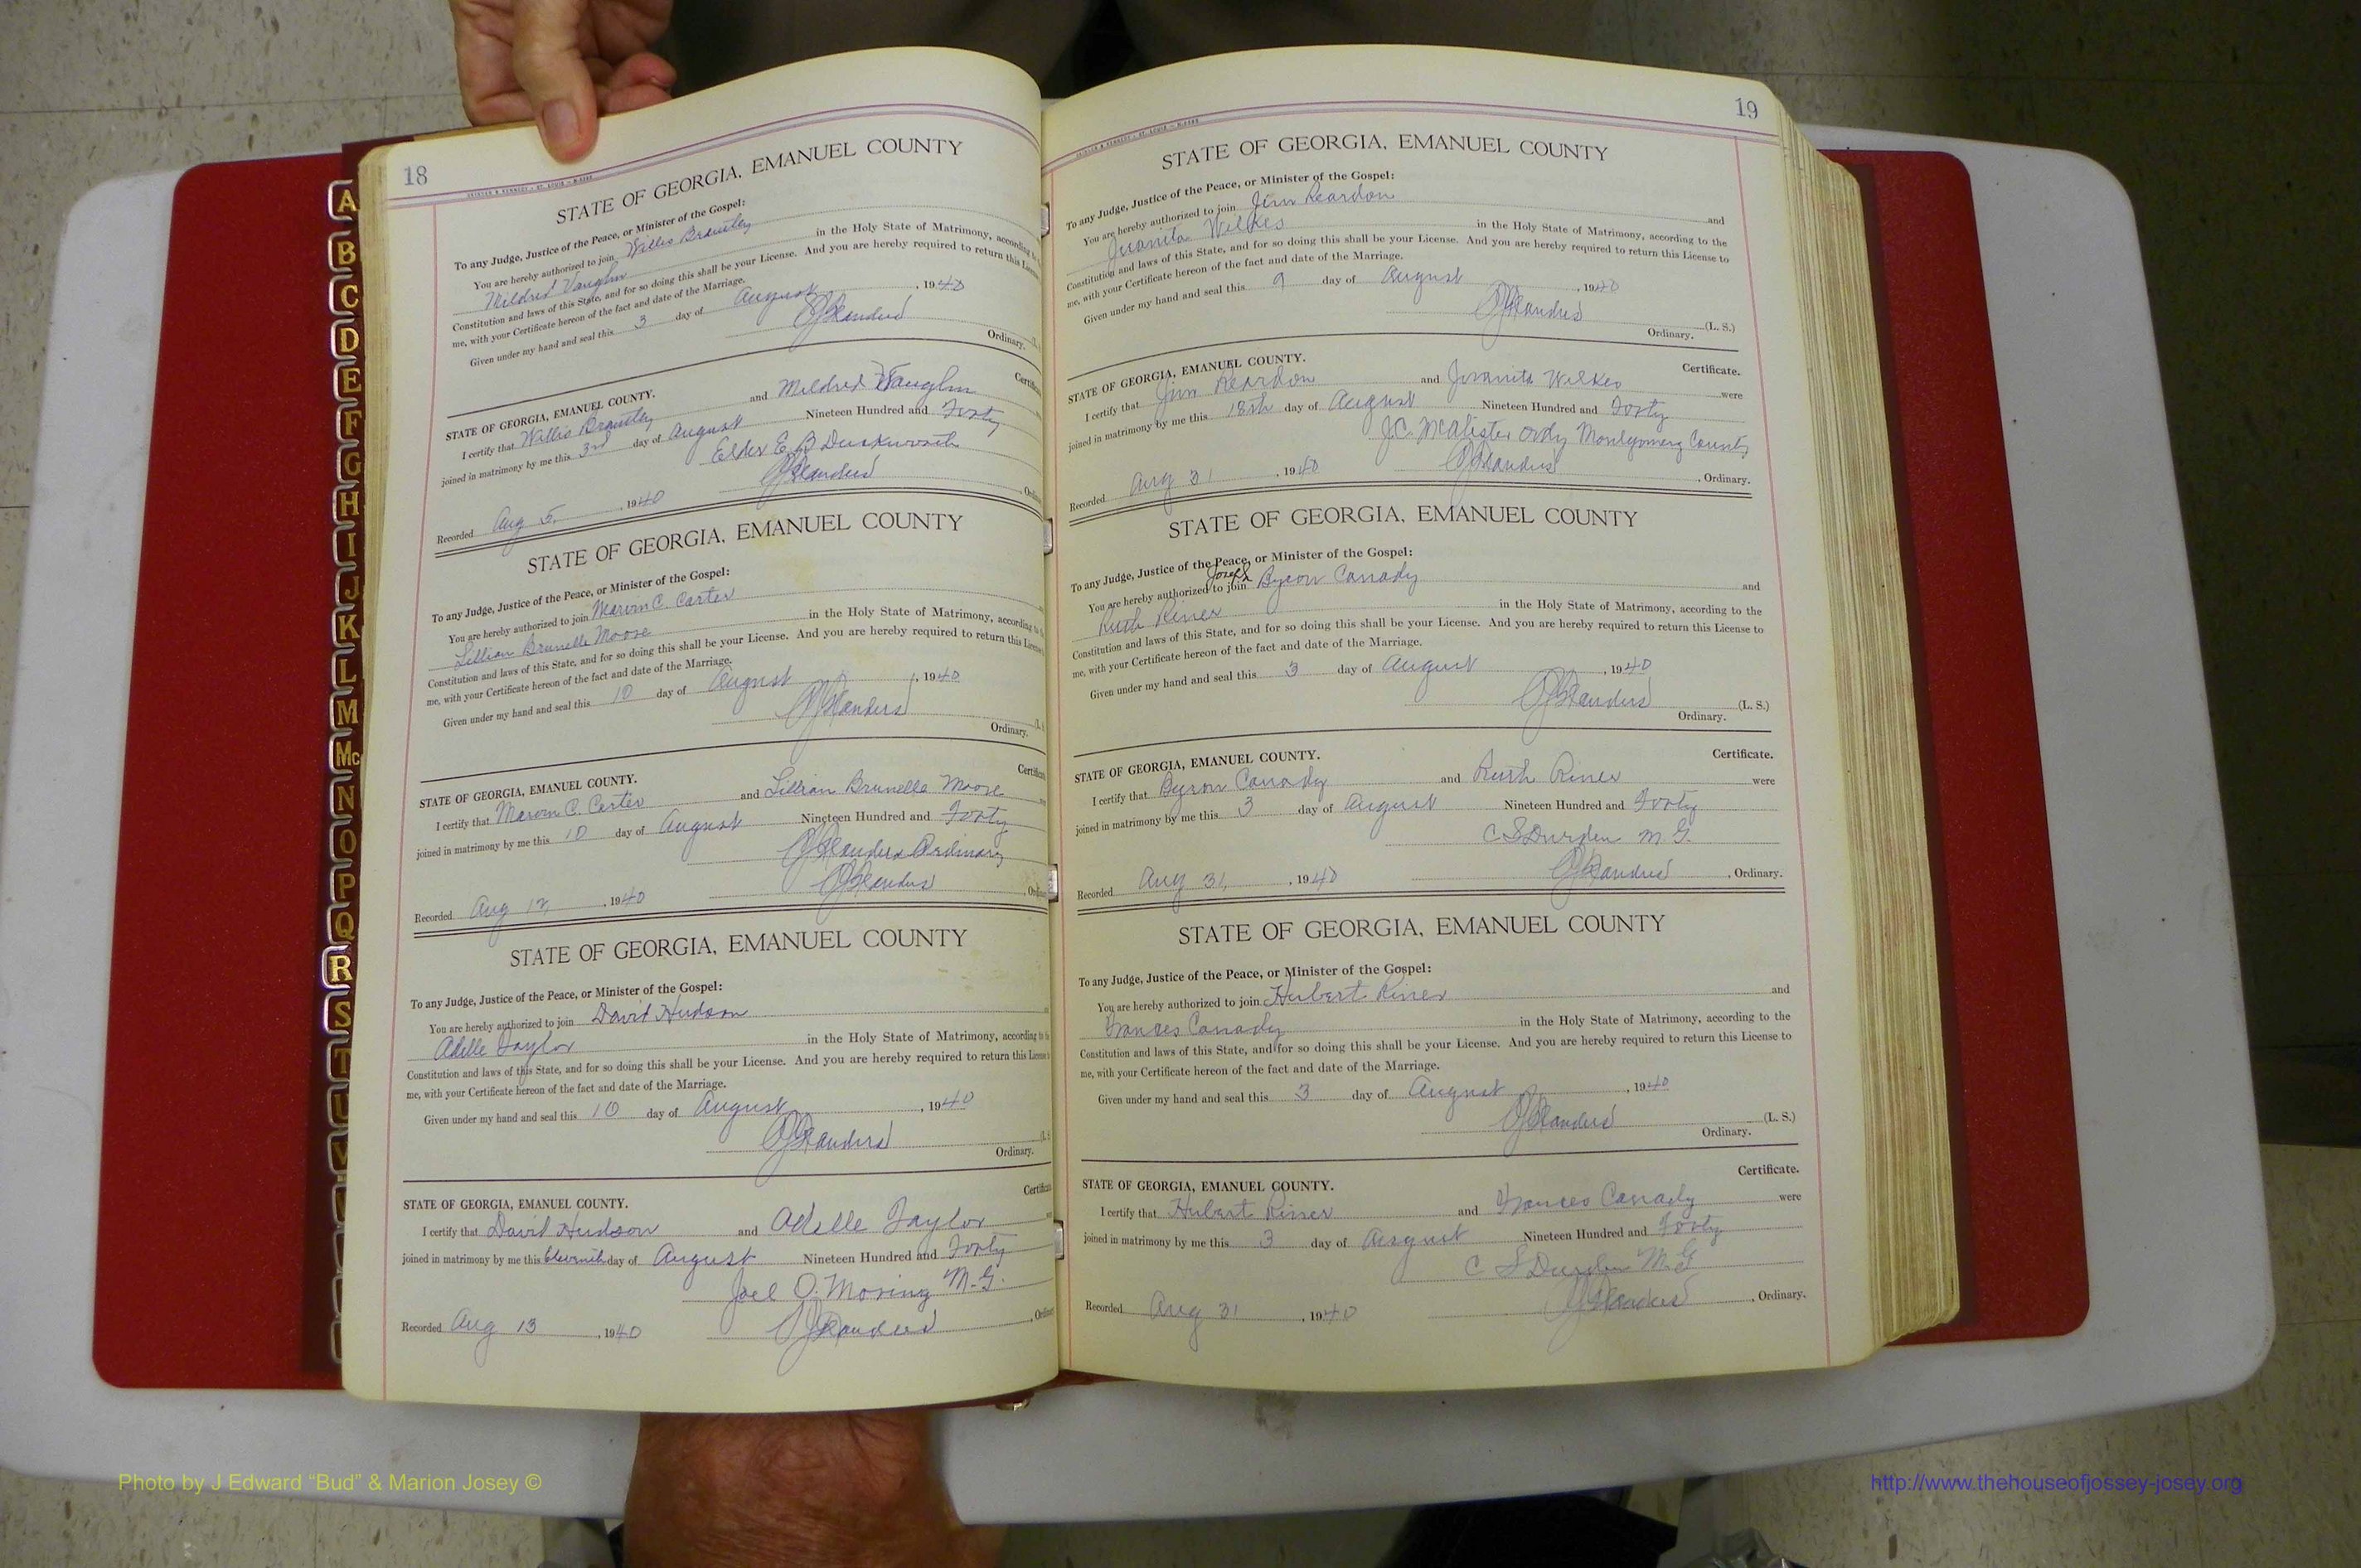 A
B
C
D
E
F
G
H
I
J
K
L
M
Mc
N
O
P
Q
R
S
T
U
V
18
STATE OF GEORGIA, EMANUEL COUNTY
To any Judge, Justice of the Peace, or Minister of the Gospel:
You are hereby authorized to join Willis Brantley
Mildred Vaughn in the Holy State of Matrimony, according
Constitution and laws of this State, and for so doing this shall be your License. And you are hereby required to return this
me, with your Certificate hereon of the fact and date of the Marriage.
Given under my hand and seal this 3 day of August, 1940
Ordinary.
STATE OF GEORGIA, EMANUEL COUNTY.
I certify that Willis Brantley and Mildred Vaughn
joined in matrimony by me this 3rd day of August Nineteen Hundred and Forty
Elder E B Duckworth
Recorded Aug 5, 1940
STATE OF GEORGIA, EMANUEL COUNTY
To any Judge, Justice of the Peace, or Minister of the Gospel:
You are hereby authorized to join Marvin C. Carter
Lillian Brunelle Moore in the Holy State of Matrimony, according
Constitution and laws of this State, and for so doing this shall be your License. And you are hereby required to return this
me, with your Certificate hereon of the fact and date of the Marriage.
Given under my hand and seal this 10 day of August, 1940
Ordinary.
STATE OF GEORGIA, EMANUEL COUNTY.
I certify that Marvin C. Carter and Lillian Brunelle Moore
joined in matrimony by me this 10 day of August Nineteen Hundred and Forty
Ordinary
Recorded Aug 12, 1940
STATE OF GEORGIA, EMANUEL COUNTY
To any Judge, Justice of the Peace, or Minister of the Gospel:
You are hereby authorized to join David Hudson
Adelle Taylor in the Holy State of Matrimony, according
Constitution and laws of this State, and for so doing this shall be your License. And you are hereby required to return this
me, with your Certificate hereon of the fact and date of the Marriage.
Given under my hand and seal this 10 day of August, 1940
Ordinary.
STATE OF GEORGIA, EMANUEL COUNTY.
I certify that David Hudson and Adelle Taylor
joined in matrimony by me this Eleventh day of August Nineteen Hundred and Forty
Joel O. Moring M.G.
Recorded Aug 13, 1940
19
STATE OF GEORGIA, EMANUEL COUNTY
To any Judge, Justice of the Peace, or Minister of the Gospel:
You are hereby authorized to join Jim Reardon and
Juanita Wilkes in the Holy State of Matrimony, according to the
Constitution and laws of this State, and for so doing this shall be your License. And you are hereby required to return this License to
me, with your Certificate hereon of the fact and date of the Marriage.
Given under my hand and seal this 9 day of August, 1940
(L. S.)
Ordinary.
STATE OF GEORGIA, EMANUEL COUNTY. Certificate.
I certify that Jim Reardon and Juanita Wilkes were
joined in matrimony by me this 18th day of August Nineteen Hundred and Forty
J.C. McAlister Ordy Montgomery County
Recorded Aug 31, 1940, Ordinary.
STATE OF GEORGIA, EMANUEL COUNTY
To any Judge, Justice of the Peace, or Minister of the Gospel:
You are hereby authorized to join Joseph Byron Canady and
Ruth Riner in the Holy State of Matrimony, according to the
Constitution and laws of this State, and for so doing this shall be your License. And you are hereby required to return this License to
me, with your Certificate hereon of the fact and date of the Marriage.
Given under my hand and seal this 3 day of August, 1940
(L. S.)
Ordinary.
STATE OF GEORGIA, EMANUEL COUNTY. Certificate.
I certify that Byron Canady and Ruth Riner were
joined in matrimony by me this 3 day of August Nineteen Hundred and Forty
C S Durden M.G.
Recorded Aug 31, 1940, Ordinary.
STATE OF GEORGIA, EMANUEL COUNTY
To any Judge, Justice of the Peace, or Minister of the Gospel:
You are hereby authorized to join Hubert Riner and
Frances Canady in the Holy State of Matrimony, according to the
Constitution and laws of this State, and for so doing this shall be your License. And you are hereby required to return this License to
me, with your Certificate hereon of the fact and date of the Marriage.
Given under my hand and seal this 3 day of August, 1940
(L. S.)
Ordinary.
STATE OF GEORGIA, EMANUEL COUNTY. Certificate.
I certify that Hubert Riner and Frances Canady were
joined in matrimony by me this 3 day of August Nineteen Hundred and Forty
C S Durden M.G
Recorded Aug 31, 1940, Ordinary.
Photo by J Edward “Bud” & Marion Josey ©
http://www.thehouseofjossey-josey.org